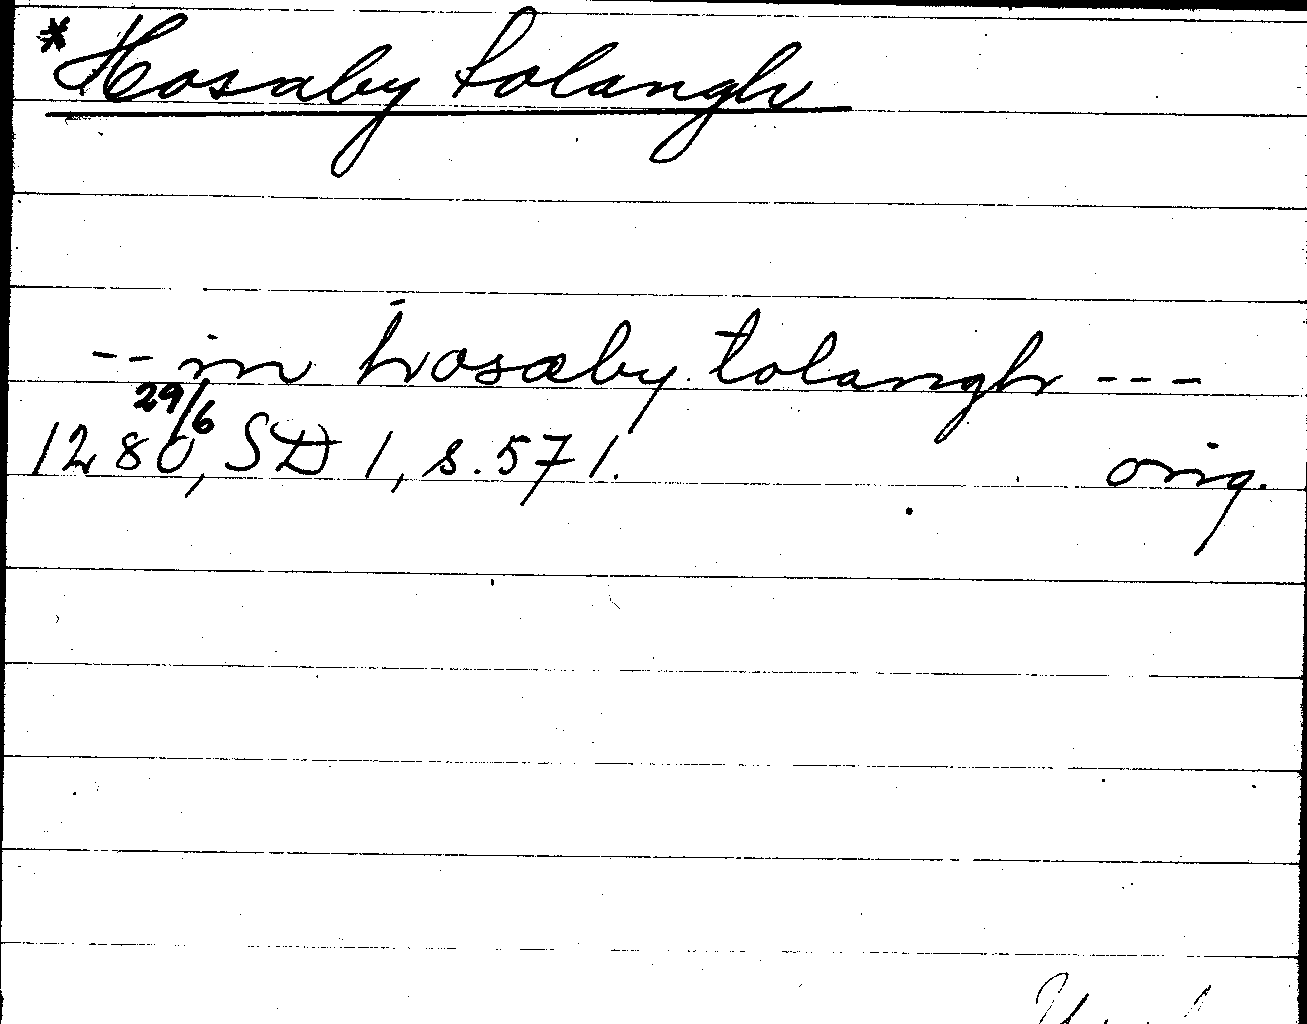 * Hosaby tolangh
-- in hosæby tolangh ---
29/6
1280, SD 1, s. 571. orig.